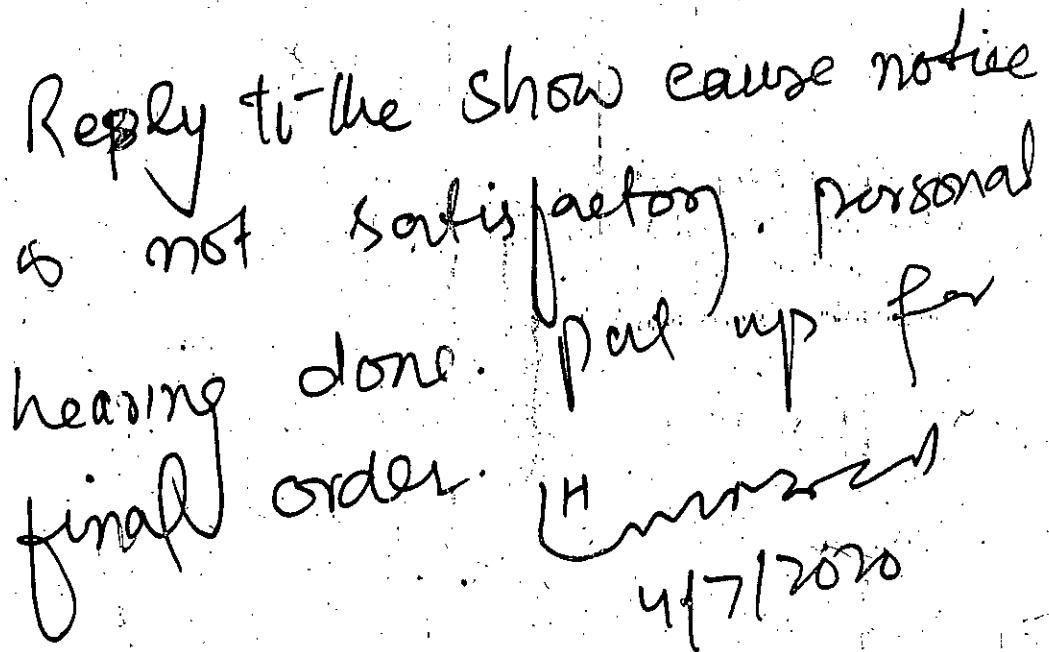 Reply to the show cause notice
is not satisfactory. personal
hearing done. put up for
final order.
4/7/2020